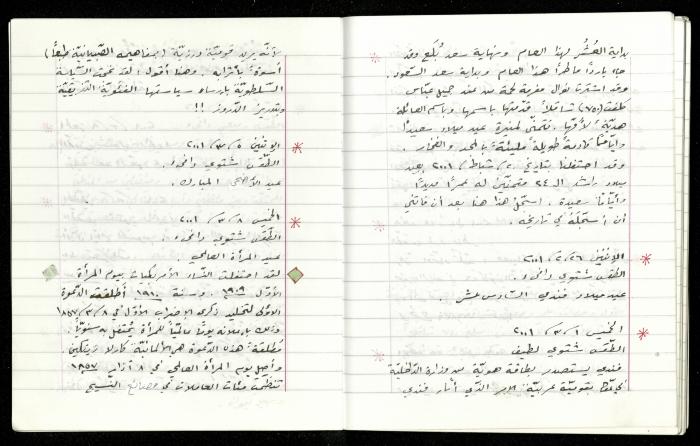 بداية العُشُر لهذا العام ونهاية سعد بُلَع وقد
جاء بارداً ماطراً هذا العام وبداية سعد السعود.
وقد اشترت نوال مفرمة لحمة من عند جميل عباس
بـ (٧٥٠) شاقلاً قدّمتها باسمها وباسم العائلة
هديّة لأمّها. نتمنّى عيد ميلاد سعيداً
وأيّاماً قادمة طويلة مليئة بالمجد والفخار.
وقد احتفلنا بتاريخ ٢٠/شباط/٢٠٠١ بعيد
ميلاد راشد الـ ٢٤ متمنّين له عمراً مديداً
وأيّاماً سعيدة. أسجّل هذا هنا بعد أن فاتني
أن أسجّله في تاريخه.
الاثنين ٢٦/٢/٢٠٠١
الطّقس شتوي دافىء.
عيد ميلاد فندي السّادس عشر.
الخميس ١/٣/٢٠٠١
الطّقس شتوي لطيف
فندي يستصدر بطاقة هويّة من وزارة الدّاخليّة
بقوميّة عربيّة الأمر الّذي أثار فندي
لأنّه يريد قوميّة درزيّة (مفاهيمه الصّبيانيّة طبعاً)
أسوةً بأترابه. وهنا أقول لقد نجحت السّياسة
السّلطويّة بإرساء سياستها الفئويّة التّفريقيّة
وتدريز الدّروز !!
الاثنين ٥/٣/٢٠٠١
الطّقس شتوي دافىء.
عيد الأضحى المبارك.
الخميس ٨/٣/٢٠٠١
الطّقس شتوي دافىء.
عيد المرأة العالمي.
لقد احتفلت النّساء الأمريكيات بيوم المرأة
الأوّل ١٩٠٩. وسنة ١٩١٠ أطلقت الدّعوة
الأولى لتخليد ذكرى الإضراب الأوّل في ٨/٣/١٨٥٧
وذلك بإعلانه يوماً عالميّاً للمرأة يُحتفل به سنويّاً.
مُطلقة هذه الدّعوة هي الألمانيّة كلارا زيتكين.
وأصل يوم المرأة العالمي في ٨ آذار ١٨٥٧
تنظيم مئات العاملات في مصانع النّسيج